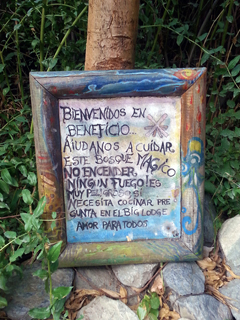 BIENVENIDOS EN
BENEFICIO...
AIUDANOS A CUIDAR
ESTE BOSQUE MAGICO
NO ENCENDER
NINGUN FUEGO ES
MUY PELIGROSO. SI
NECESITA COCINAR PRE
GUNTA EN EL BIG LODGE
AMOR PARA TODOS